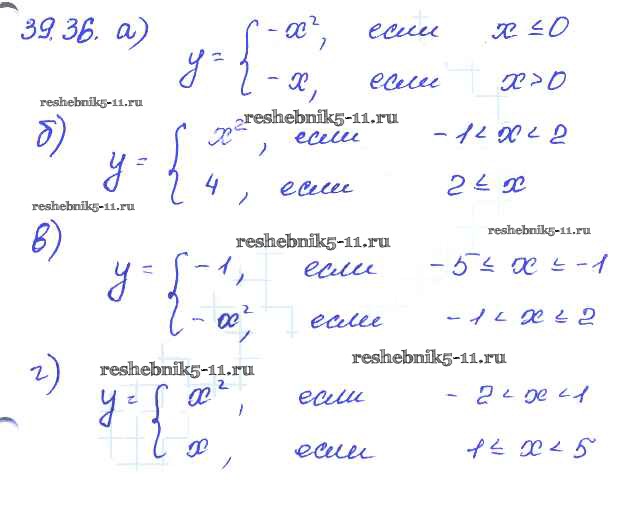 39.36. а) y = { -x², если x ≤ 0
-x, если x > 0
reshebnik5-11.ru
reshebnik5-11.ru
б) y = { x², если -1 < x < 2
4, если 2 ≤ x
reshebnik5-11.ru
reshebnik5-11.ru
reshebnik5-11.ru
в) y = { -1, если -5 ≤ x ≤ -1
-x², если -1 < x ≤ 2
reshebnik5-11.ru
reshebnik5-11.ru
г) y = { x², если -2 < x < 1
x, если 1 ≤ x < 5